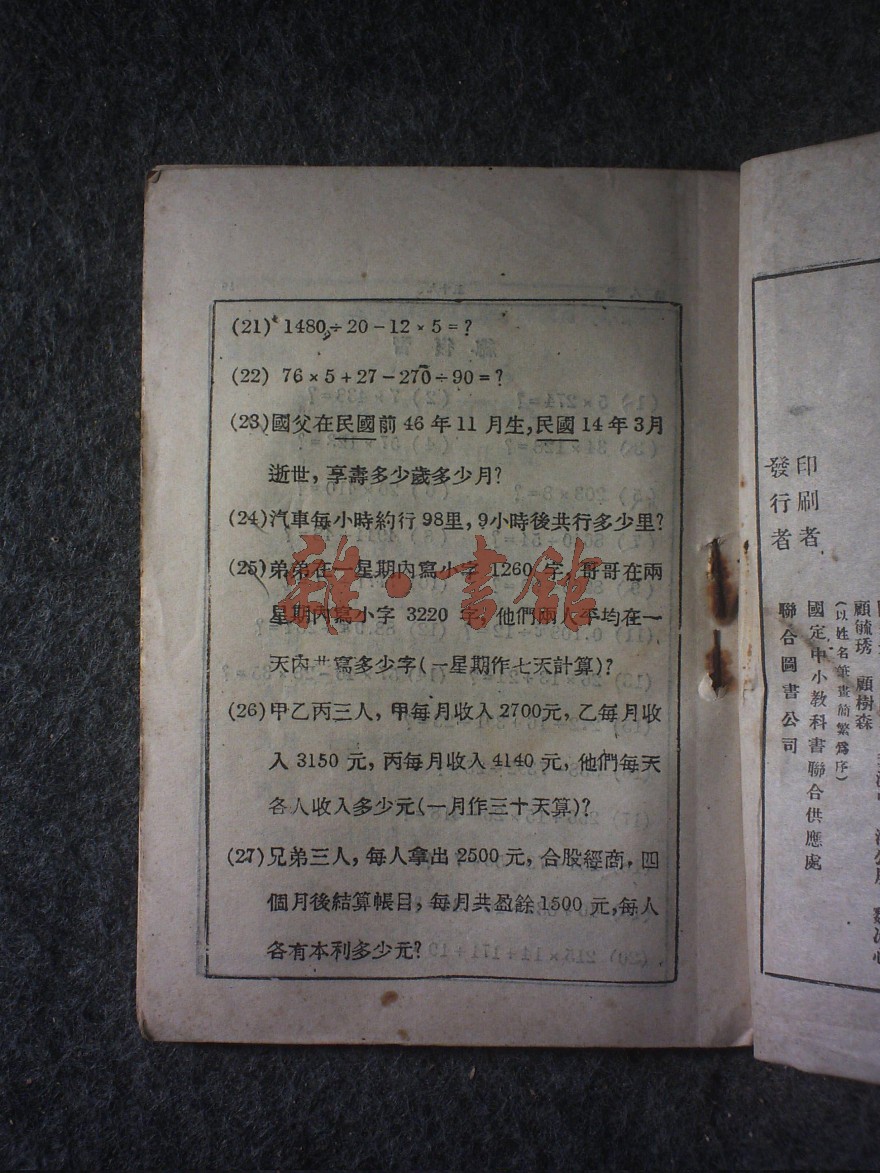 (21) 1480÷20-12×5=?
(22) 76×5+27-270÷90=?
(23)國父在民國前46年11月生,民國14年3月
逝世,享壽多少歲多少月?
(24)汽車每小時約行98里,9小時後共行多少里?
(25)弟弟在一星期內寫小字1260字,哥哥在兩
星期內寫小字3220字,他們兩人平均在一
天內共寫多少字(一星期作七天計算)?
(26)甲乙丙三人,甲每月收入2700元,乙每月收
入3150元,丙每月收入4140元,他們每天
各人收入多少元(一月作三十天算)?
(27)兄弟三人,每人拿出2500元,合股經商,四
個月後結算帳目,每月共盈餘1500元,每人
各有本利多少元?
雜·書館
顧毓琇 顧樹森
(以姓名筆畫簡繁爲序)
印刷者
國定中小教科書聯合供應處
發行者
聯合圖書公司